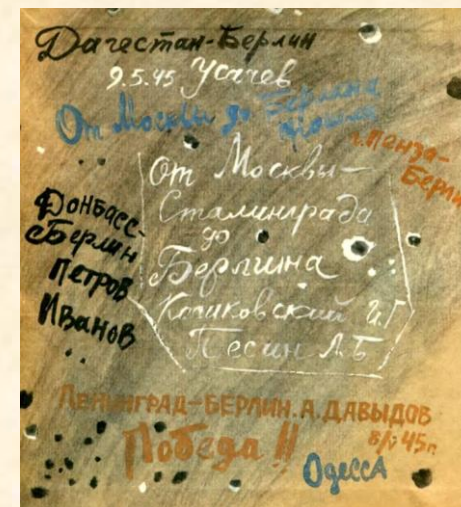 Дагестан-Берлин
9.5.45 Усачев
От Москвы до Берлина
дошли
г. Пенза-
Берлин
От Москвы-
Сталинграда
до
Берлина
И.Г
Песин Л.Б
Донбасс-
Берлин
Петров
Иванов
Ленинград-Берлин. А. Давыдов
45г.
Победа!!
Одесса